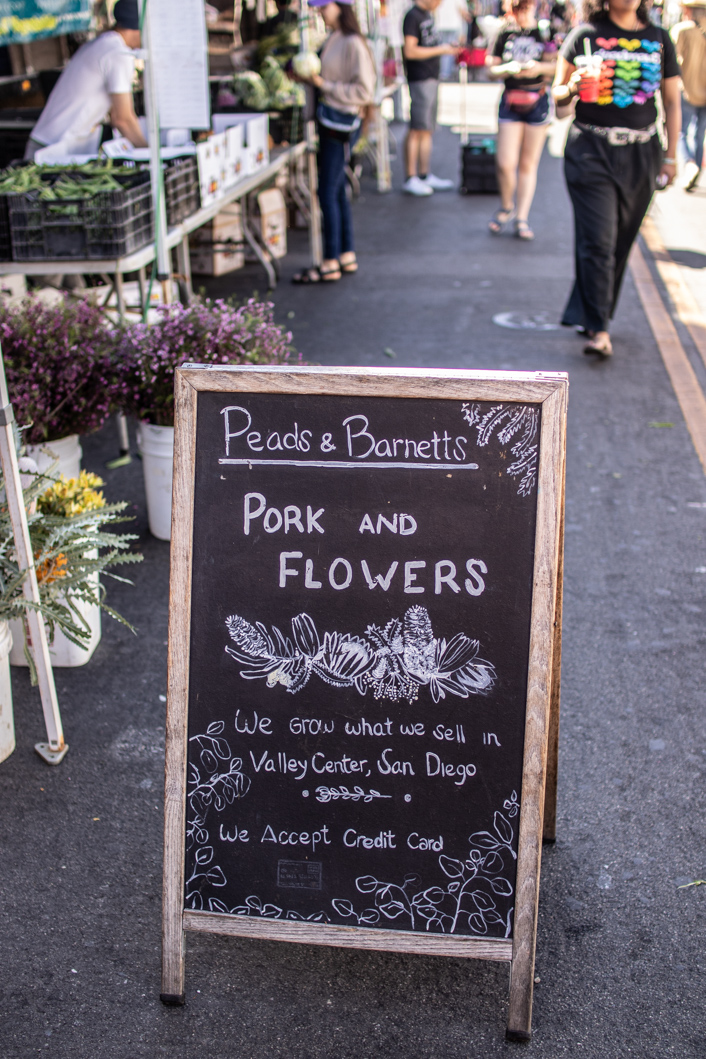 Peads & Barnetts
PORK AND
FLOWERS
We grow what we sell in
Valley Center, San Diego
We Accept Credit Card